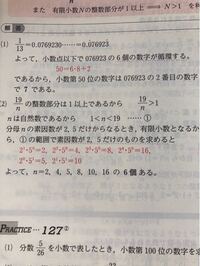 また 有限小数Nの整数部分が1以上⟺N≧1 を利
解答
(1) 1/13=0.0769230……=0.076923
よって，小数点以下で 076923 の6個の数字が循環する。
50=6・8+2
であるから，小数第50位の数字は 076923 の2番目の数字
で 7 である。
(2) 19/n の整数部分は1以上であるから 19/n>1
n は自然数であるから 1<n<19 ……①
分母 n の素因数が 2，5 だけからなるとき，有限小数となるか
ら，①の範囲で素因数が 2，5 だけのものを求めると
2¹・5⁰=2, 2²・5⁰=4, 2³・5⁰=8, 2⁴・5⁰=16,
2⁰・5¹=5, 2¹・5¹=10
よって，n=2, 4, 5, 8, 10, 16 の 6個 ある。
PRACTICE … 127②
(1) 分数 5/26 を小数で表したとき，小数第100位の数字を求